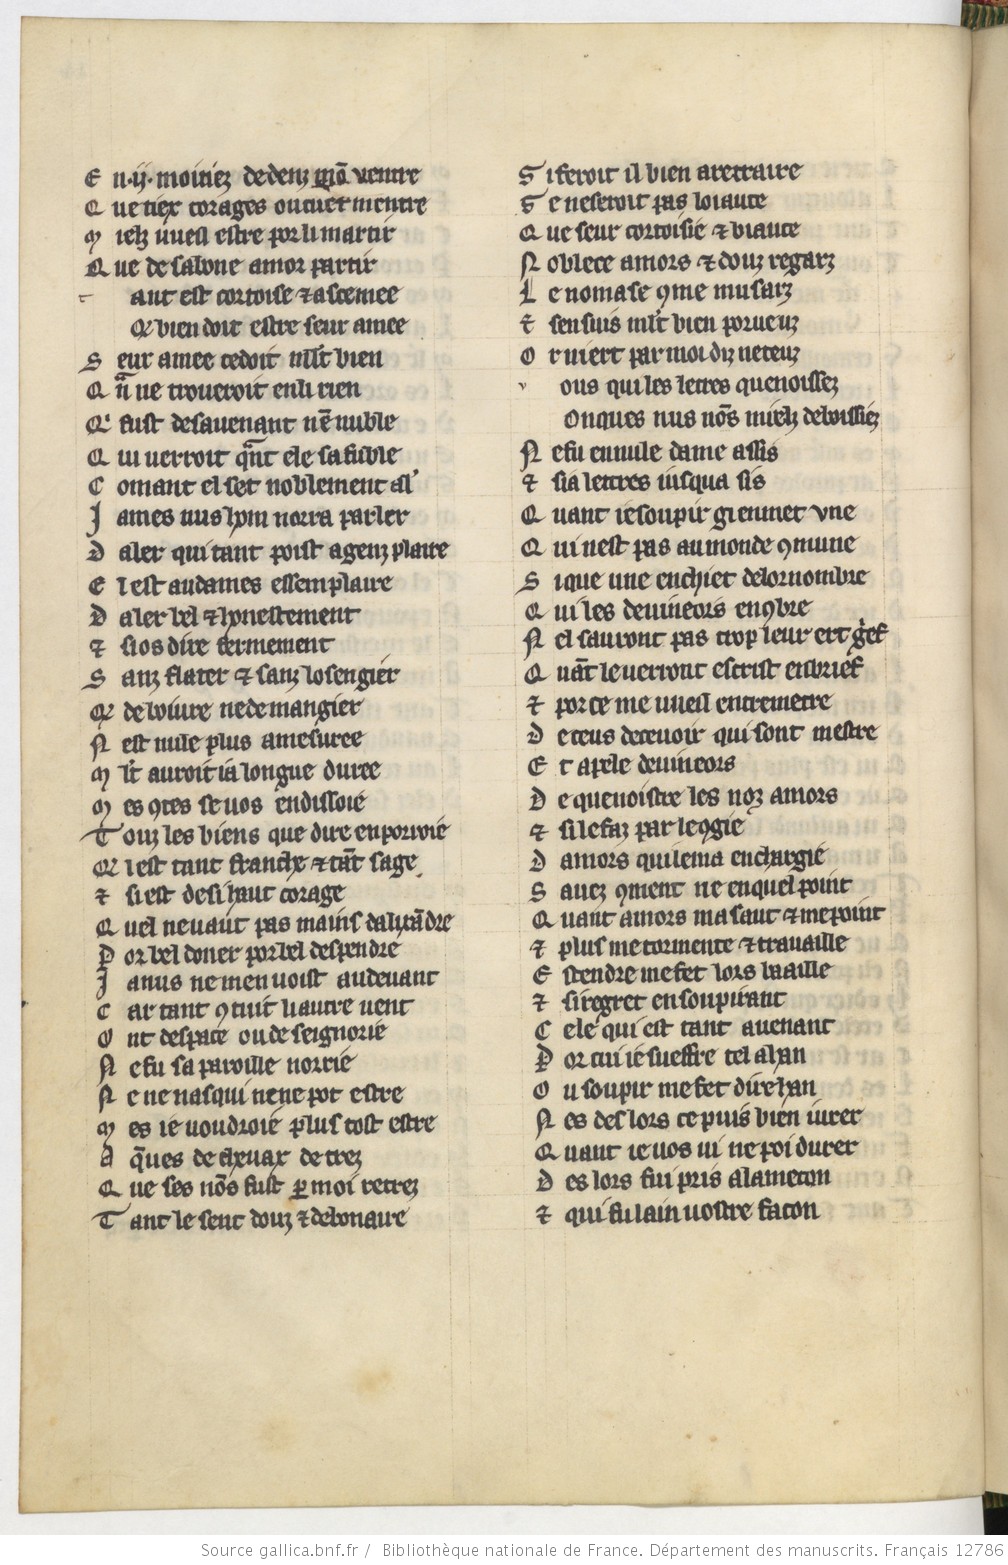 E n .ij. moitiez dedenz mō ventre
Q ue tiex corages ou cuer mentre
M ielz vueil estre por li martir
Q ue de sa bone amor partir
t ant est cortoise ⁊ ascemee
Q̄ bien doit estre seur amee
S eur amee ce doit mlt bien
Q n̄ ne troveroit en li rien
Q' fust desavenant nē nuble
Q ui verroit q̄nt ele safuble
C omant el set noblement al'
J ames nus hom norra parler
D aler qui tant poist a genz plaire
E l est au dames essemplaire
D aler bel ⁊ honestement
⁊ si os dire fermement
S anz flater ⁊ sanz losengier
Q̄ de boivre ne de mangier
N est nule plus amesuree
M lt auroit ia longue duree
M es 9tes se vos en dissoie
T ouz les biens que dire en porroie
Q̄ l est tant franche ⁊ tāt sage
⁊ si est de si haut corage
Q uel ne vaut pas mains dalixādre
P or bel doner por bel despendre
J a nus ne men voist au devant
C ar tant 9 tuit li autre vent
O nt despace ou de seignorie
N e fu sa paroille norrie
N e ne nasqui ne ne pot estre
M es ie voudroie plus tost estre
A q̄ues de chevax detrez
Q ue ses nōs fust p̱ moi retrez
T ant le sent douz ⁊ debonaire
S i feroit il bien a retraire
S e ne seroit pas loiaute
Q ue seur cortoisie ⁊ biaute
N oblece amors ⁊ douz regarz
L e nomase 9me musarz
⁊ sen suis mlt bien porveuz
O r niert par moi diz ne teuz
v ous qui les letres quenoissez
Onques nus nōs mielz deboissiez
N e fu en nule dame assis
⁊ si a letres iusqua sis
Q uant ie soupir gien met vne
Q ui nest pas au monde 9mune
S i que une en chiet de lor nombre
Q ui les devineors en9bre
N el sauront pas trop leur ert g̓ef
Q uāt le verront escrist en brief
⁊ por ce me vueil entremetre
D e ceus decevoir qui sont mestre
E t apele devineors
D e quenoistre les noz amors
⁊ si le faz par le 9gie
D amors qui le ma enchargie
S avez 9ment ne en quel point
Q uant amors masaut ⁊ me point
⁊ plus me tormente ⁊ travaille
E stendre me fet lors baaille
⁊ si regret en soupirant
C ele qui est tant avenant
P or cui ie sueffre tel ahan
O u soupir me fet dire han
N es des lors ce puis bien iurer
Q uant ie vos vi ne poi durer
D es lors fui pris a lamecon
⁊ qui fu lain vostre facon
Source gallica.bnf.fr / Bibliothèque nationale de France. Département des manuscrits. Français 12786